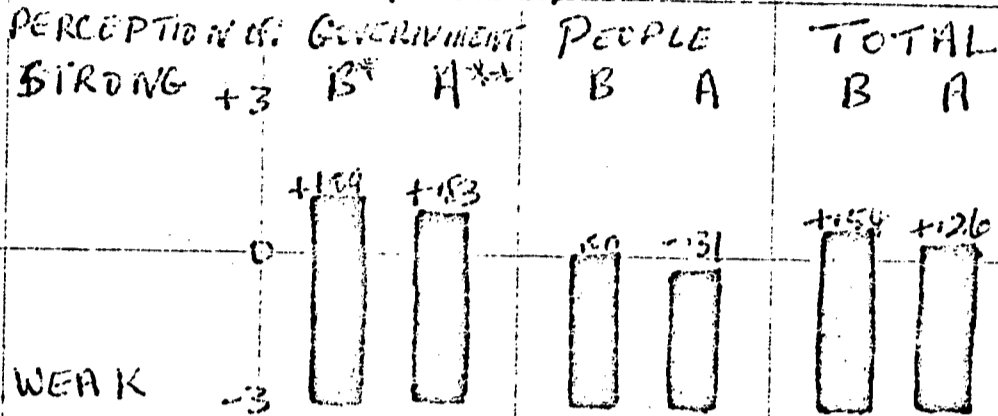 PERCEPTION OF: GOVERNMENT PEOPLE TOTAL
STRONG +3 B* A** B A B A
+1.09 +.83 .00 -.31 +.54 +.26
0
WEAK -3